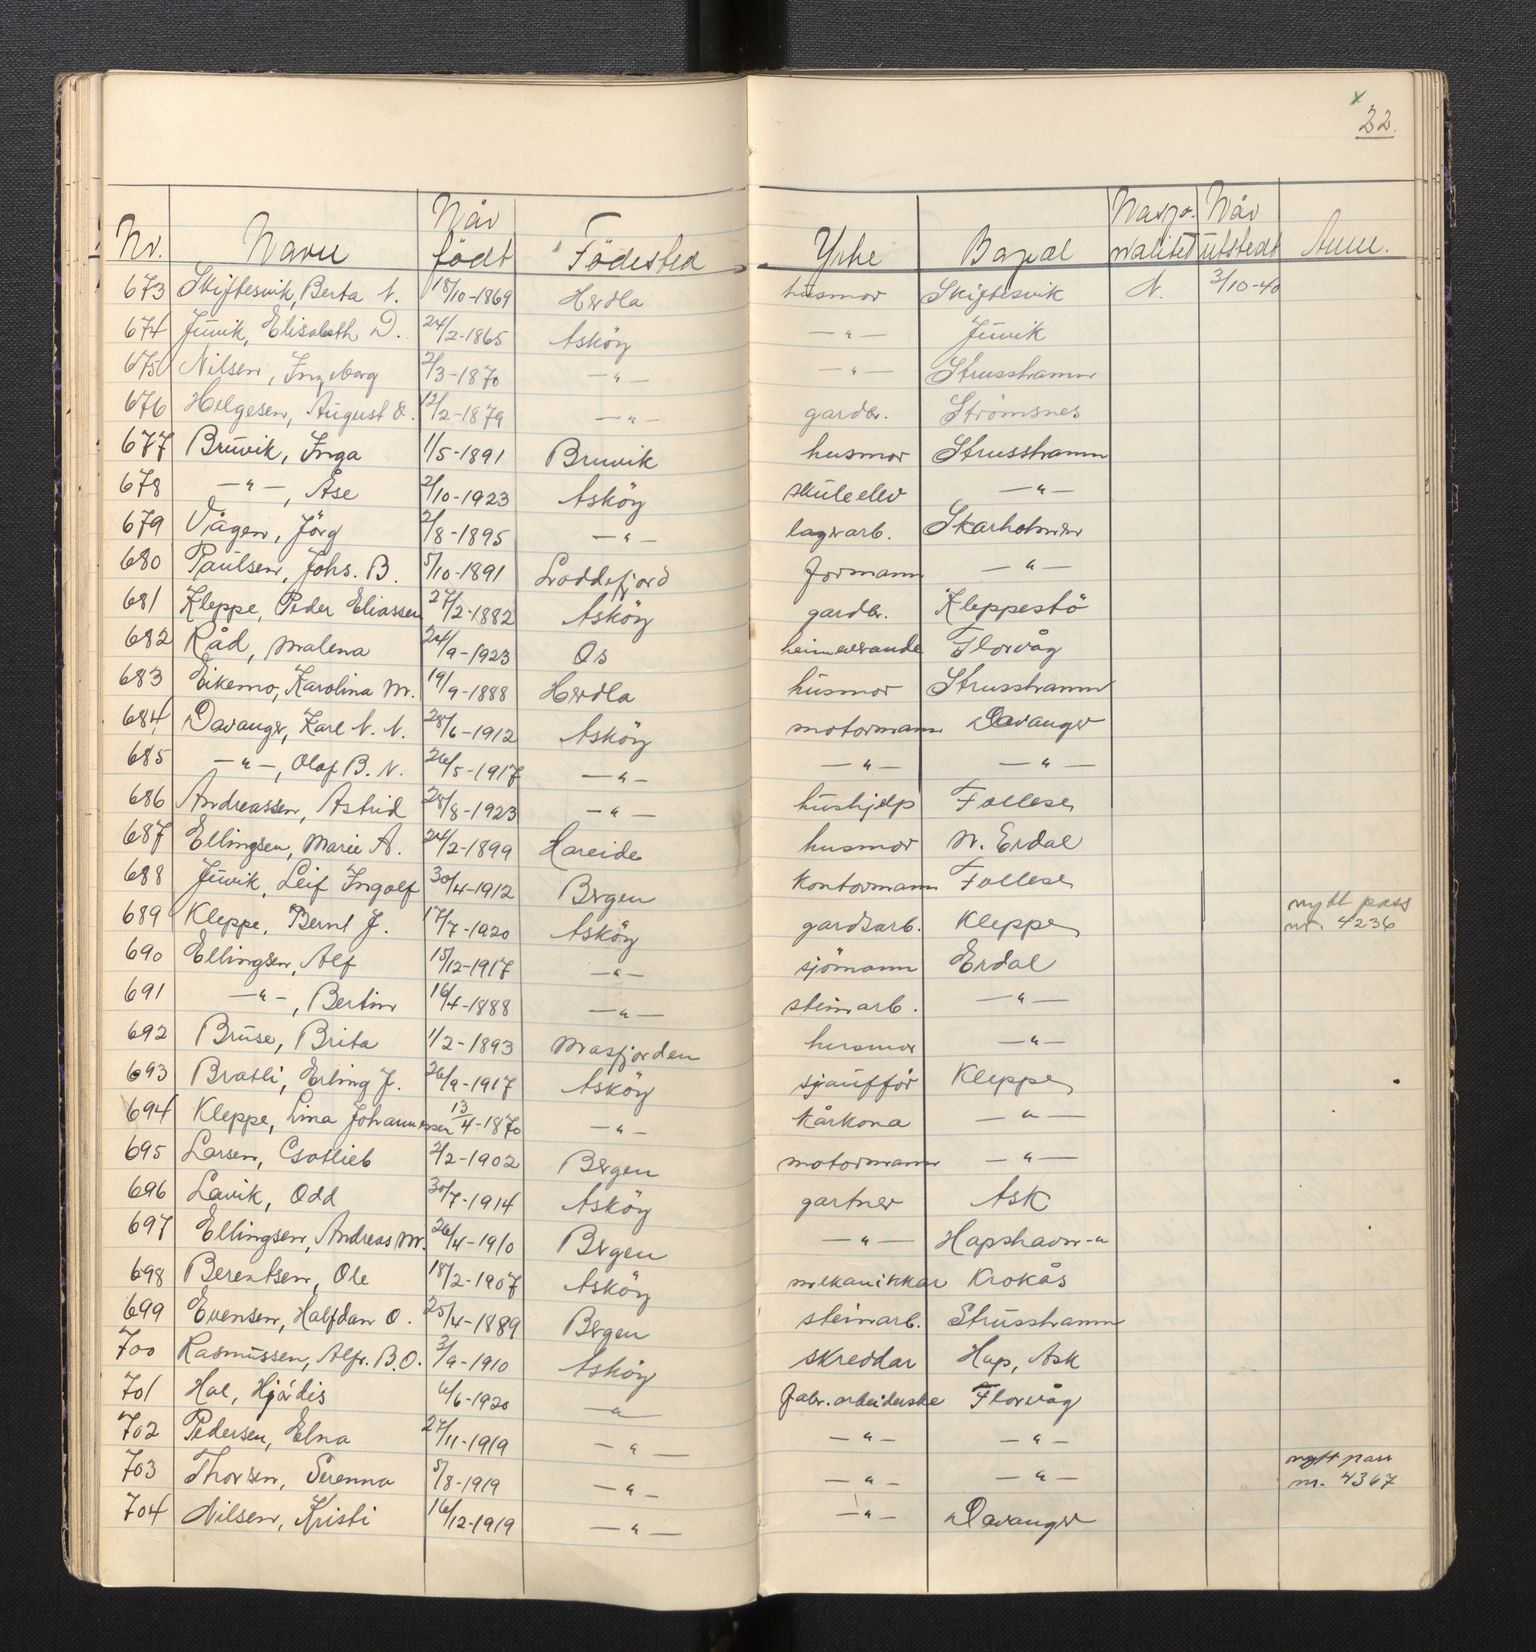 22.
Nr. Navn Når födt Födested Yrke Bopæl Nasjonalitet Når utstedt Anm.
673 Skiftesvik, Berta N. 18/10-1869 Herdla husmor Skiftesvik N. 3/10-40
674 Juvik, Elisabeth D. 24/2-1865 Asköy —"— Juvik
675 Nilsen, Ingeborg 2/3-1870 —"— —"— Strusshamn
676 Helgesen, August O. 12/2-1879 —"— gardbr. Strömsnes
677 Bruvik, Inga 1/5-1891 Bruvik husmor Strusshamn
678 —"—, Åse 2/10-1923 Asköy skuleelev —"—
679 Vågen, Jörg 2/8-1895 —"— lagerarb. Skarholmen
680 Paulsen, Johs. B. 5/10-1891 Loddefjord formann —"—
681 Kleppe, Peder Eliassen 27/2-1882 Asköy gardbr. Kleppestö
682 Råd, Malena 24/9-1923 Os heimeverande Florvåg
683 Eikemo, Karolina M. 19/9-1888 Herdla husmor Strusshamn
684 Davanger, Karl N. N. 28/6-1912 Asköy motormann Davanger
685 —"—, Olaf B. N. 26/5-1917 —"— —"— —"—
686 Andreassen, Astrid 28/8-1923 —"— hushjelp Follese
687 Ellingsen, Marie A. 24/2-1899 Hareide husmor N. Erdal
688 Juvik, Leif Ingolf 30/4-1912 Bergen kontormann Follese
689 Kleppe, Bernt J. 17/7-1920 Asköy gardsarb. Kleppe nytt pass nr. 4236
690 Ellingsen, Alf 15/12-1917 —"— sjömann Erdal
691 —"—, Bertin 16/4-1888 —"— steinarb. —"—
692 Bruse, Brita 1/2-1893 Masfjorden husmor —"—
693 Bratli, Erling J. 26/9-1917 Asköy sjaufför Kleppe
694 Kleppe, Lina Johannessen 13/4-1870 —"— kårkona —"—
695 Larsen, Gotlieb 2/2-1902 Bergen motormann —"—
696 Lavik, Odd 30/7-1914 Asköy gartner Ask
697 Ellingsen, Andreas M. 26/4-1910 Bergen —"— Hapshavn-"
698 Berentsen, Ole 18/2-1907 Asköy mekanikkar Krokås
699 Evensen, Halfdan O. 25/4-1889 Bergen steinarb. Strusshamn
700 Rasmussen, Alfr. B.O. 3/9-1910 Asköy skreddar Hop, Ask
701 Hal, Hjördis 6/6-1920 —"— fabr. arbeiderske Florvåg
702 Pedersen, Elna 27/11-1919 —"— —"— —"—
703 Thorsen, Serenna 5/8-1919 —"— —"— —"— nytt pass nr. 4367
704 Nilsen, Kristi 16/12-1919 —"— —"— Davanger